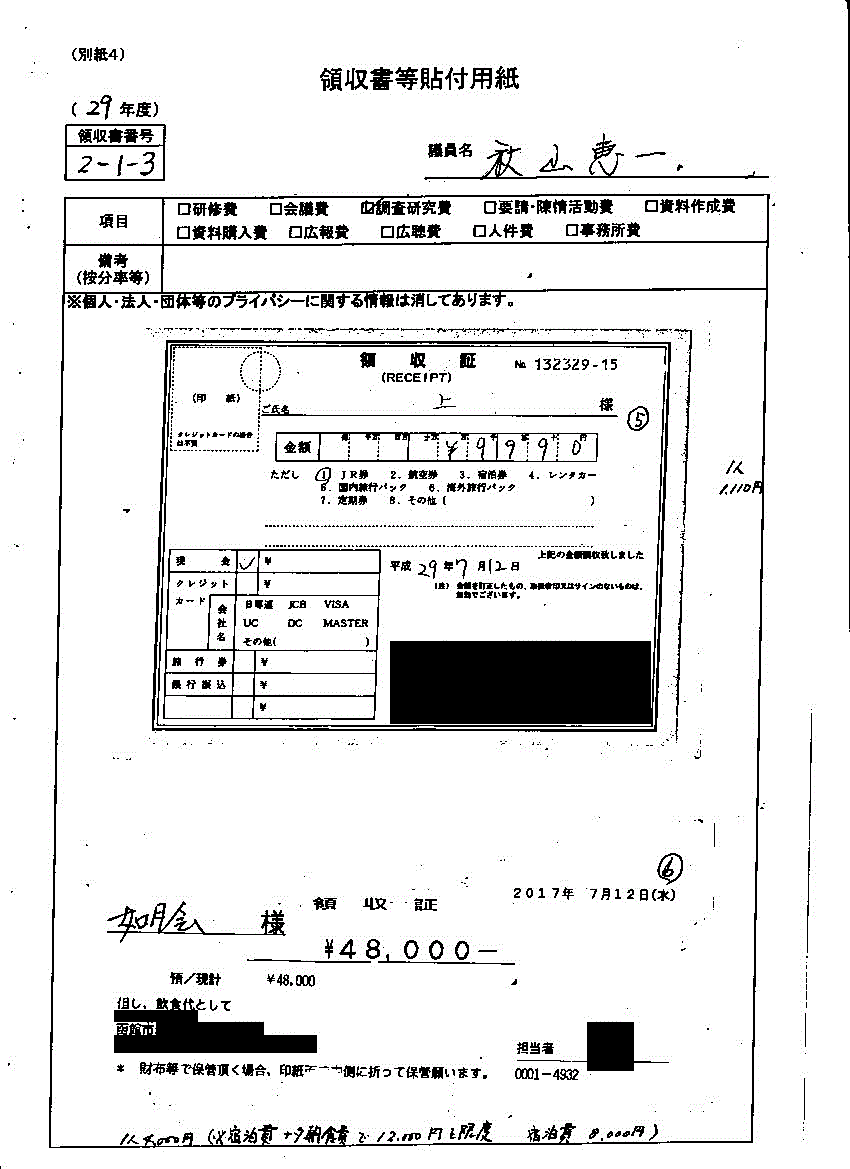 （別紙4）
領収書等貼付用紙
（29年度）
領収書番号
2-1-3
議員名 秋山恵一
項目
□研修費 □会議費 ☑調査研究費 □要請・陳情活動費 □資料作成費
□資料購入費 □広報費 □広聴費 □人件費 □事務所費
備考
（按分率等）
※個人・法人・団体等のプライバシーに関する情報は消してあります。
領収証 № 132329-15
(RECEIPT)
（印 紙）
クレジットカードの場合
は不要
ご氏名 上 様
⑤
金額 ¥9990
ただし ① JR券 2. 航空券 3. 宿泊券 4. レンタカー
5. 国内旅行パック 6. 海外旅行パック
7. 定期券 8. その他（ ）
1人
1,110円
上記の金額領収致しました
平成29年7月12日
（注）金額を訂正したもの、取扱者印又はサインのないものは、
無効でございます。
現金 ✓ ¥
クレジット ¥
カード
会社名
日専連 JCB VISA
UC DC MASTER
その他( )
旅行券 ¥
銀行振込 ¥
¥
⑥
2017年 7月12日(水)
領収証
如月会 様
¥48,000-
預/現計 ¥48,000
但し、飲食代として
函館市
担当者
0001-4932
* 財布等で保管頂く場合、印紙 側に折って保管願います。
宿泊費+夕朝食費で12,000円を限度 宿泊費 8,000円)